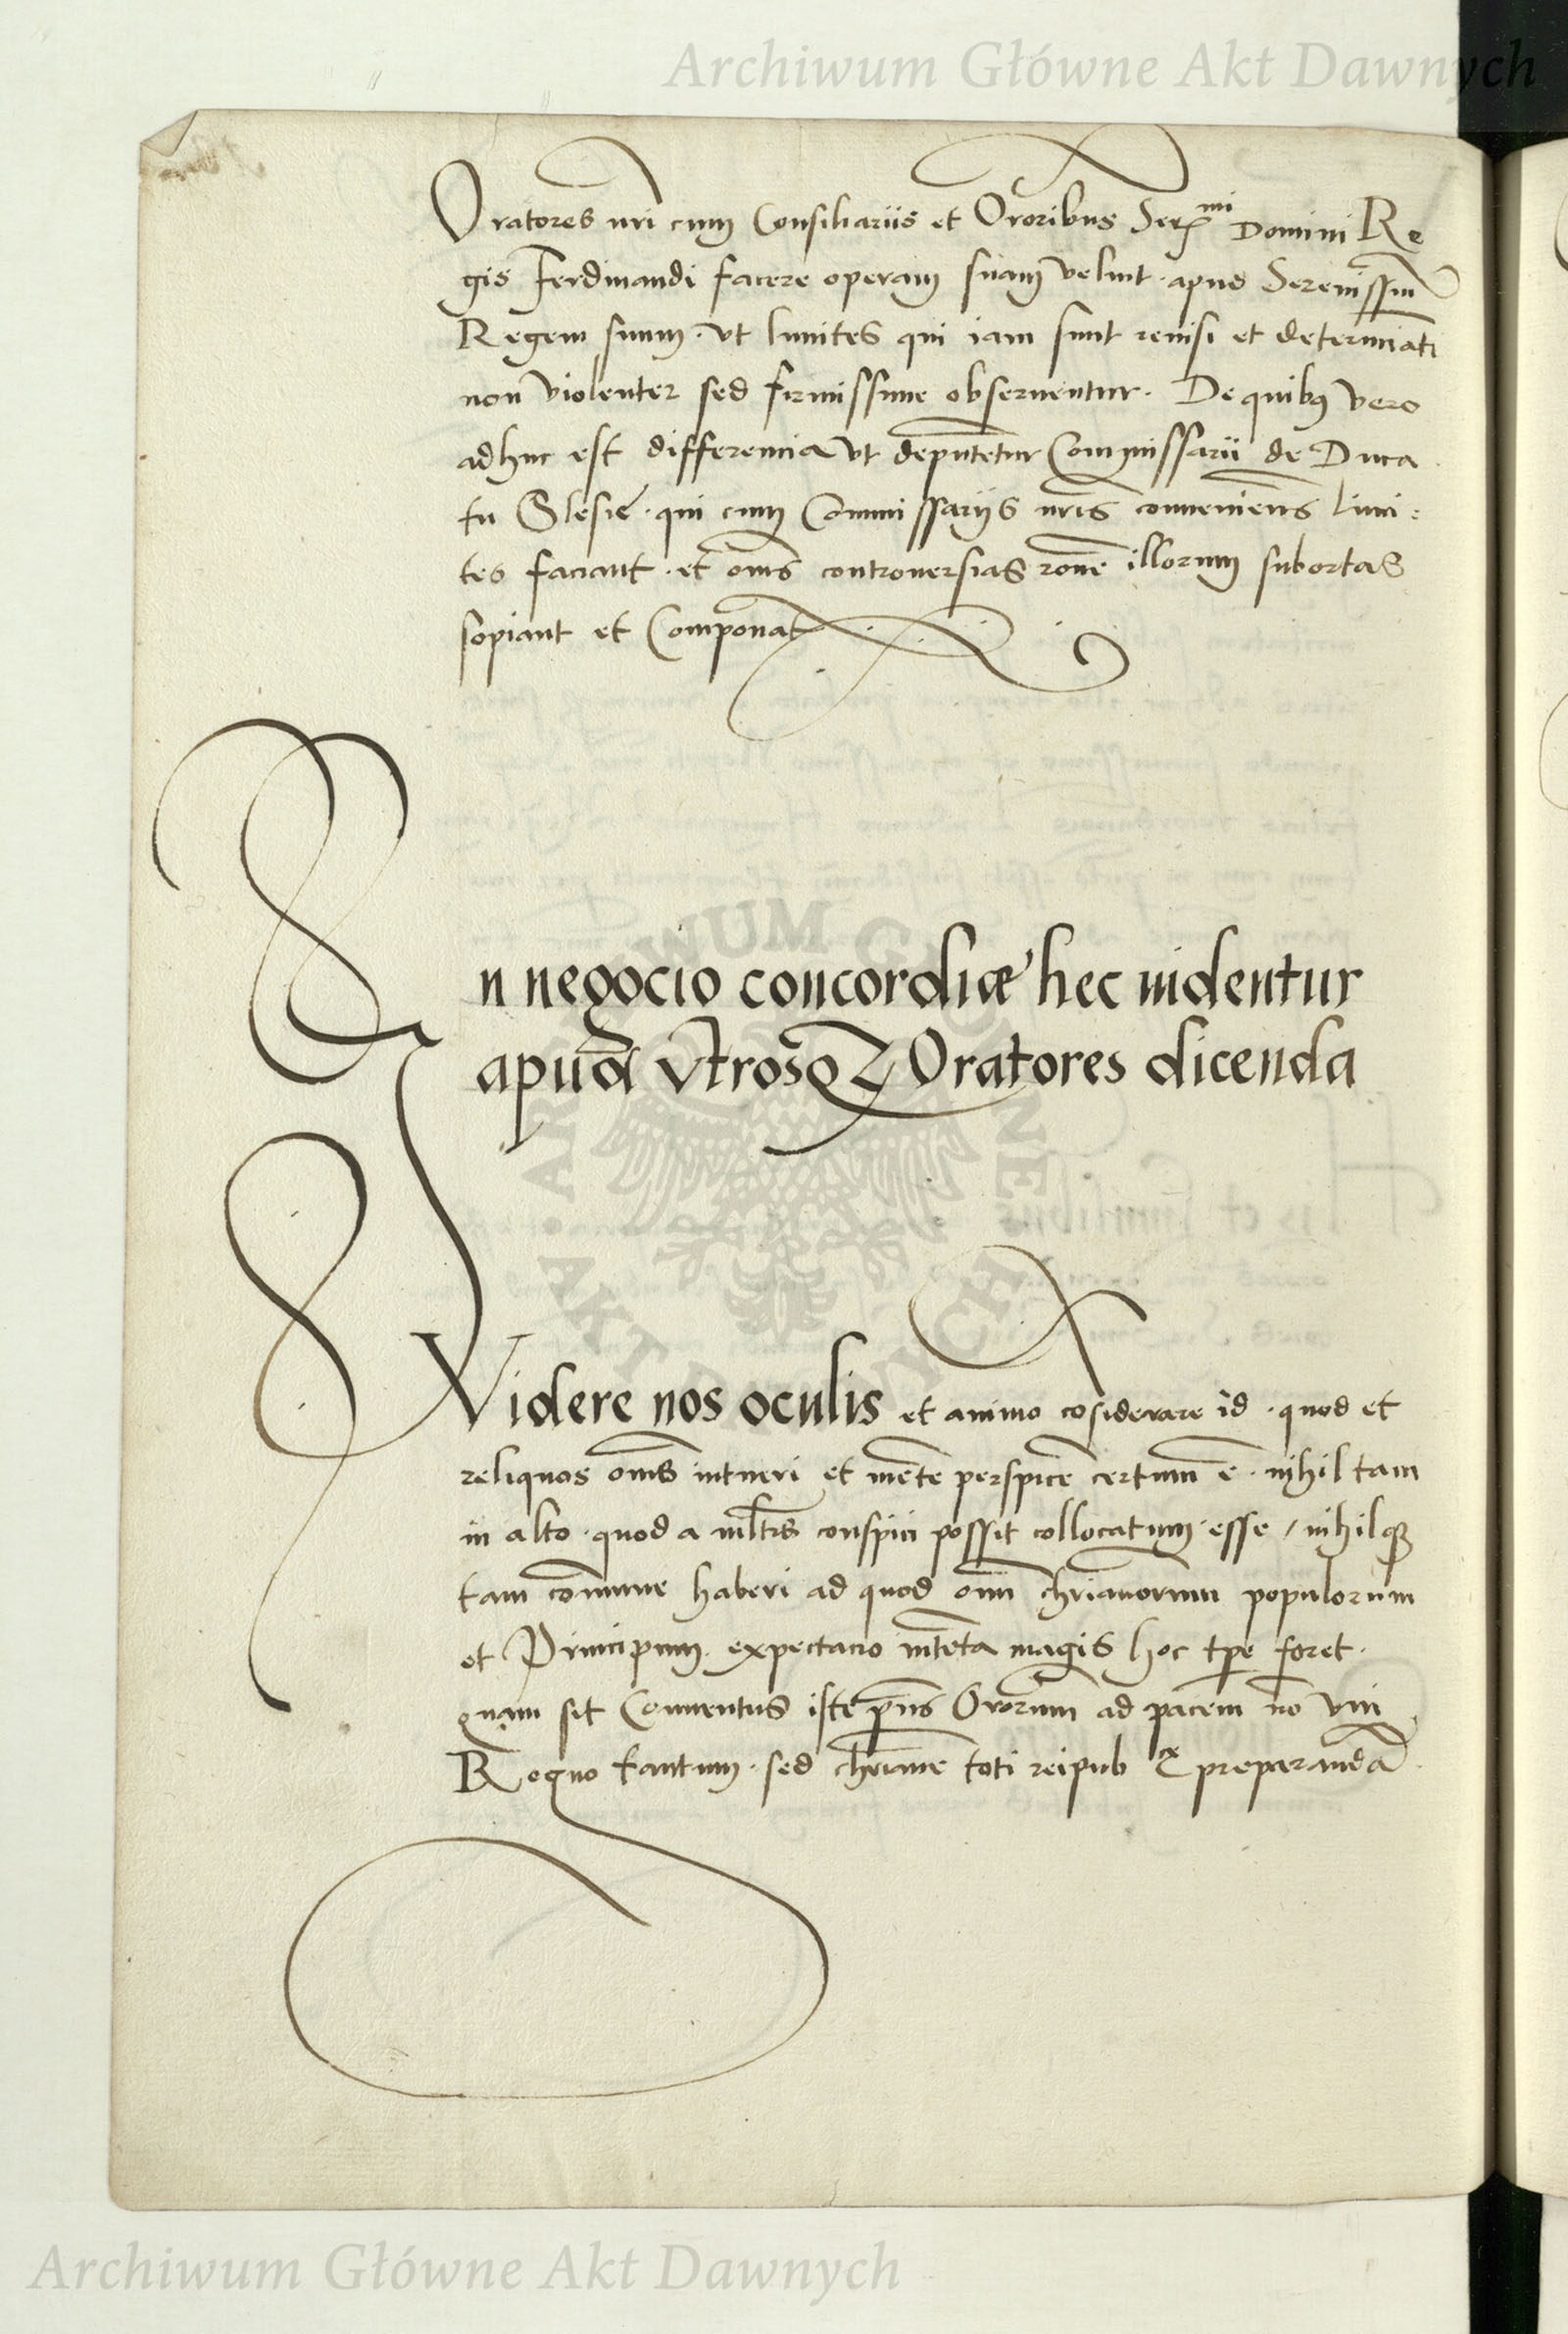 Archiwum Główne Akt Dawnych
Oratores nri cum Consiliariis et Ororibus Ser^mi Domini Re
gis Ferdinandi facere operam suam velint · apud Serenissimū
Regem suum · vt limites qui iam sunt reuisi et determinati
non violenter sed firmissime obseruentur · De quibus vero
adhuc est differencia vt deputētur Commissarii de Duca
tu Slesie · qui cum Commissariis nris conuenientes limi:
tes faciant · et oms controuersias rone illorum subortas
sopiant et Componāt
In negocio concordiæ hec uidentur
apud vtrosqȝ Oratores dicenda
Videre nos oculis et animo cōsiderare id · quod et
reliquos oms intueri et mēte perspicē certum ē · nihil tam
in alto · quod a mltis conspici possit collocatum · esse / nihilqȝ
tam cōmune haberi ad quod oīm chrianorum populorum
et Principum · expectacio intēta magis hoc tpe foret ·
quam sit Conuentus iste pns Ororum ad pacem nō vni
Regno tantum · sed chriane toti reipub preparandā ·
ARCHIWUM GŁÓWNE · AKT DAWNYCH ·
Archiwum Główne Akt Dawnych